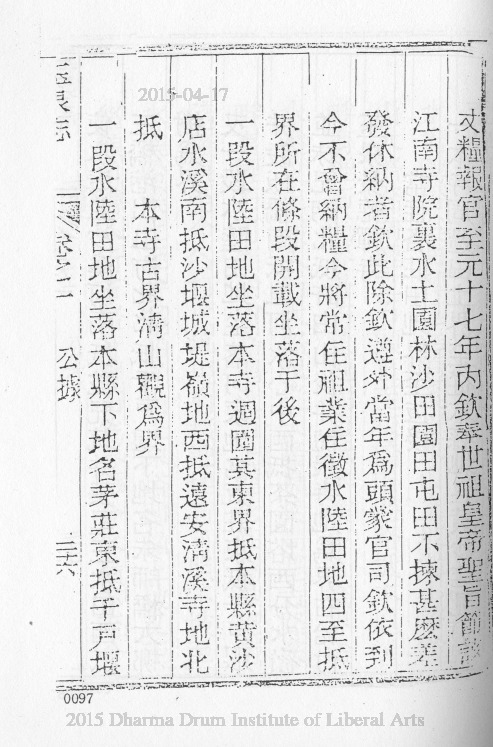 丈糧報官至元十七年內欽奉世祖皇帝聖旨節該
江南寺院裏水土園林沙田園田屯田不揀甚麼差
發休納者欽此除欽遵外當年爲頭蒙官司欽依到
今不曾納糧今將常住祖業住徵水陸田地四至抵
界所在條段開載坐落于後
一段水陸田地坐落本寺週圍其東界抵本縣黃沙
店水溪南抵沙堰城堤嶺地西抵遠安清溪寺地北
抵 本寺古界清山觀爲界
一段水陸田地坐落本縣下地名茅莊東抵千戶堰
玉泉志 卷之二 公據 二六
0097
2015-04-17
2015 Dharma Drum Institute of Liberal Arts